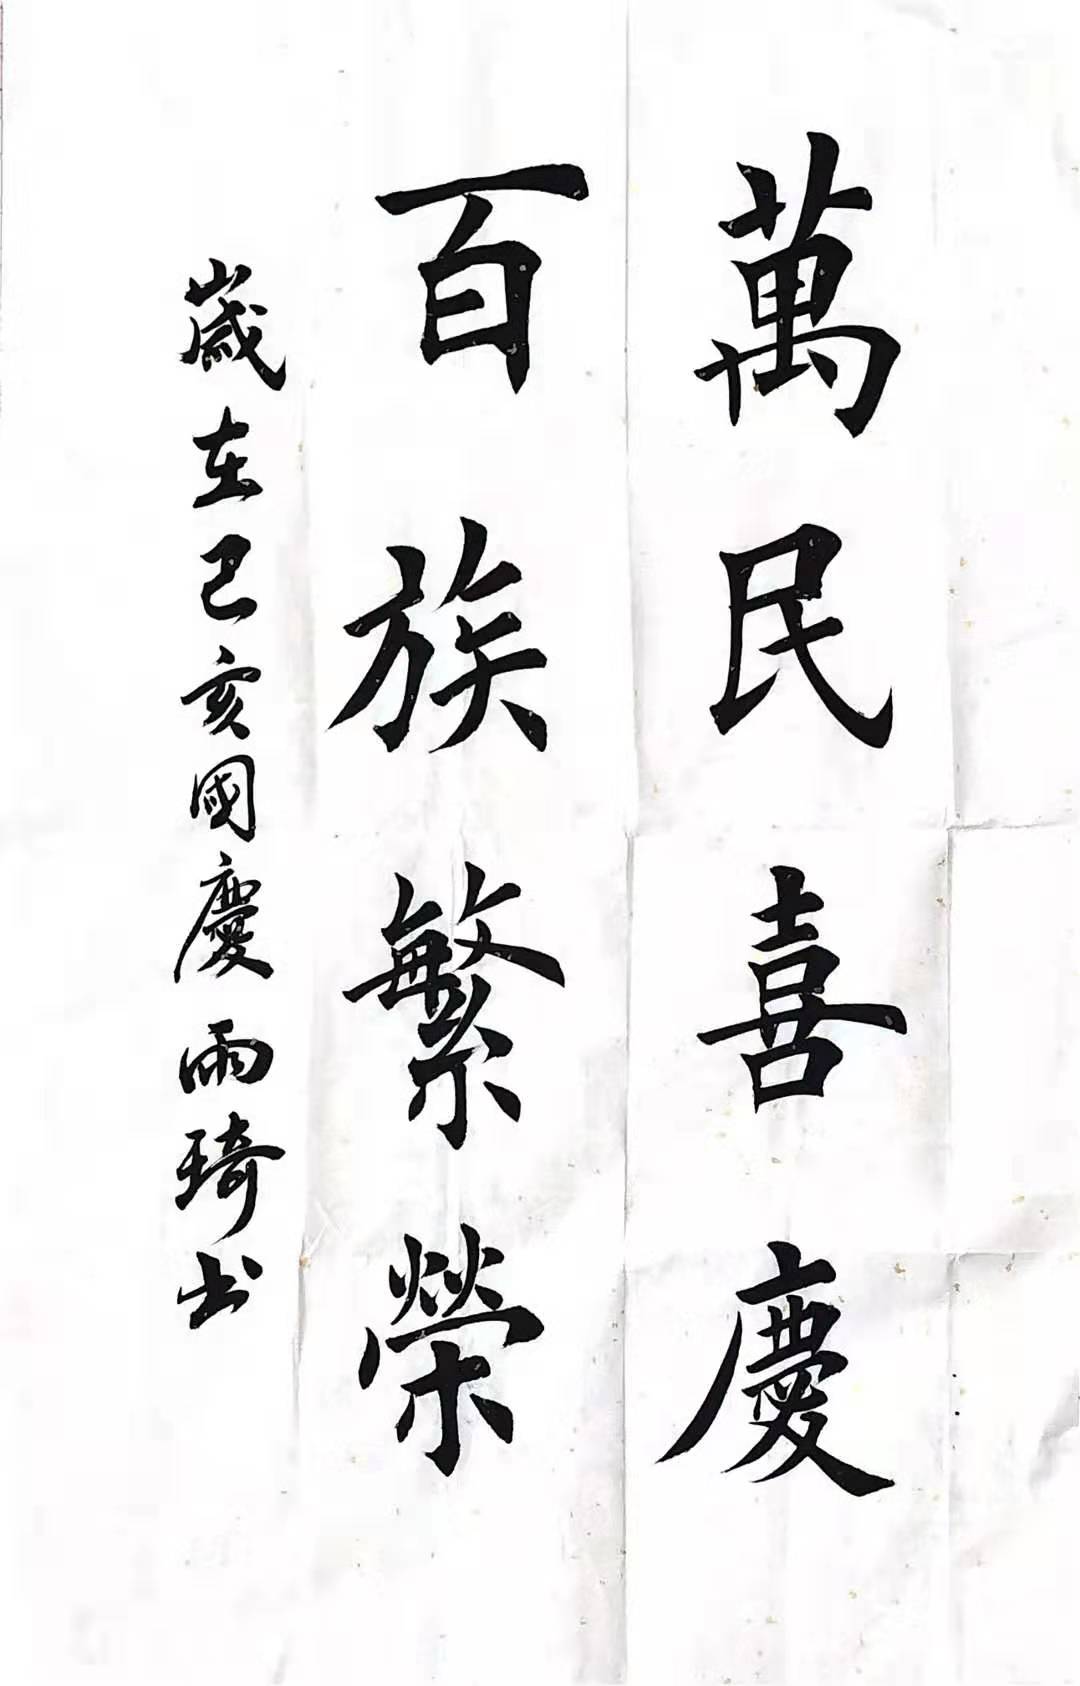 萬民喜慶
百族繁榮
歲在己亥國慶雨琦书